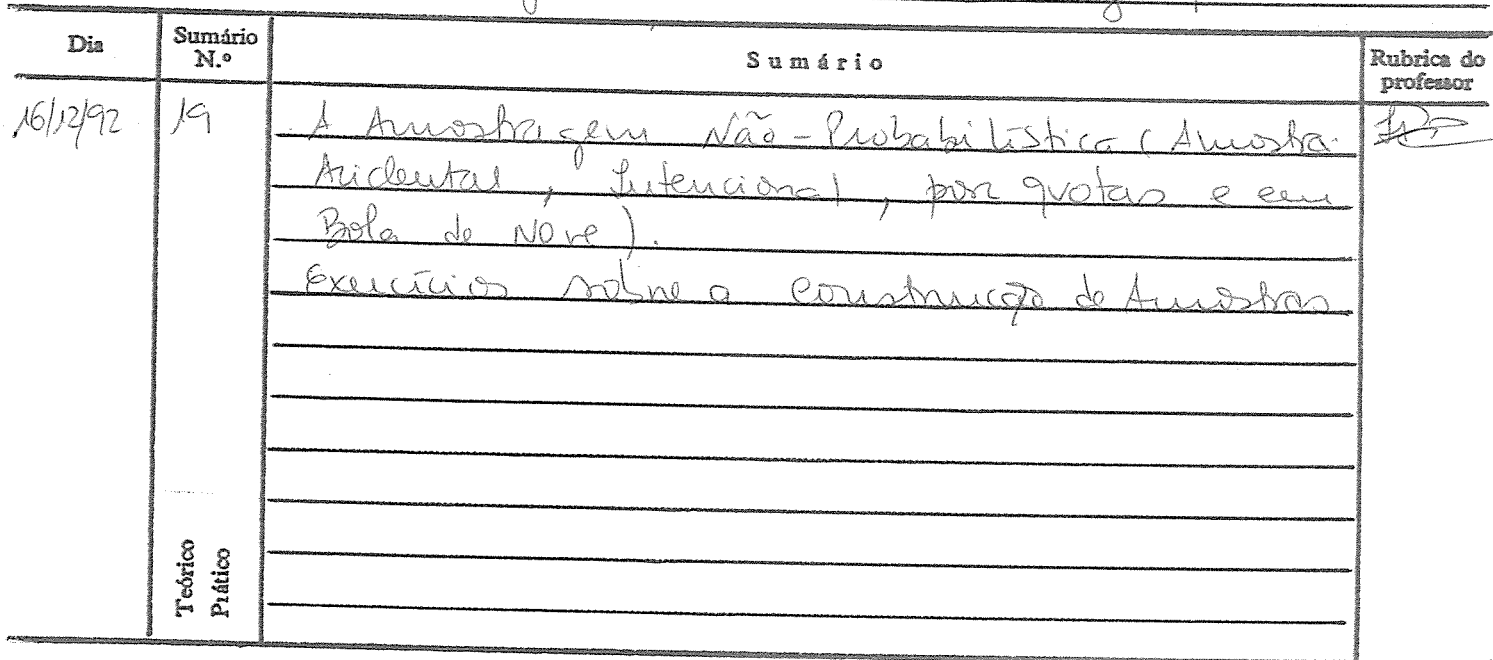 Dia
Sumário N.º
Sumário
Rubrica do professor
16/12/92
19
A Amostragem Não-Probabilística (Amostra
Acidental, Intencional, por quotas e em
Bola de Neve).
Exercícios sobre a construção de Amostras
Teórico
Prático